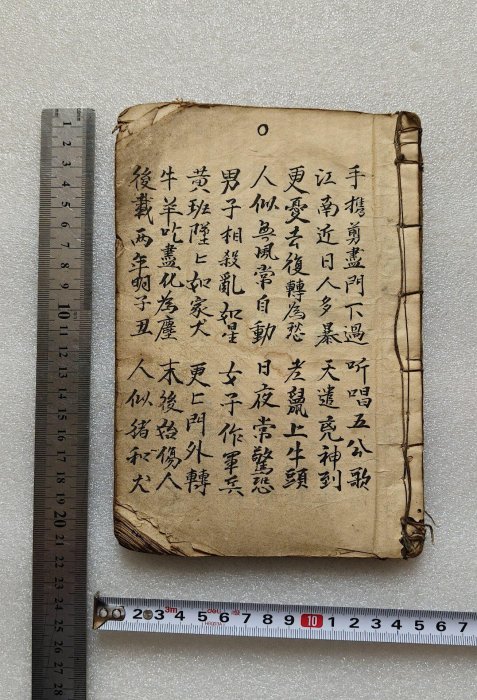 手携剪盡門下過 听唱五公歌
江南近日人多暴 天遣神到
更憂去復轉為愁 老鼠上牛頭
人似無風常自動 日夜常驚恐
男子相殺亂如星 女子作軍兵
黄班〻如家犬 更〻門外轉
牛羊吃盡化為塵 末後始傷人
後載兩年明子丑 人似猪和犬
1 2 3 4 5 6 7 8 9 10 11 12 13 14 15 16 17 18 19 20 21 22 23 24 25 26 27 28
2 3 3m 4 5 6 7 8 9 10 1 2 3 4 5 6 7